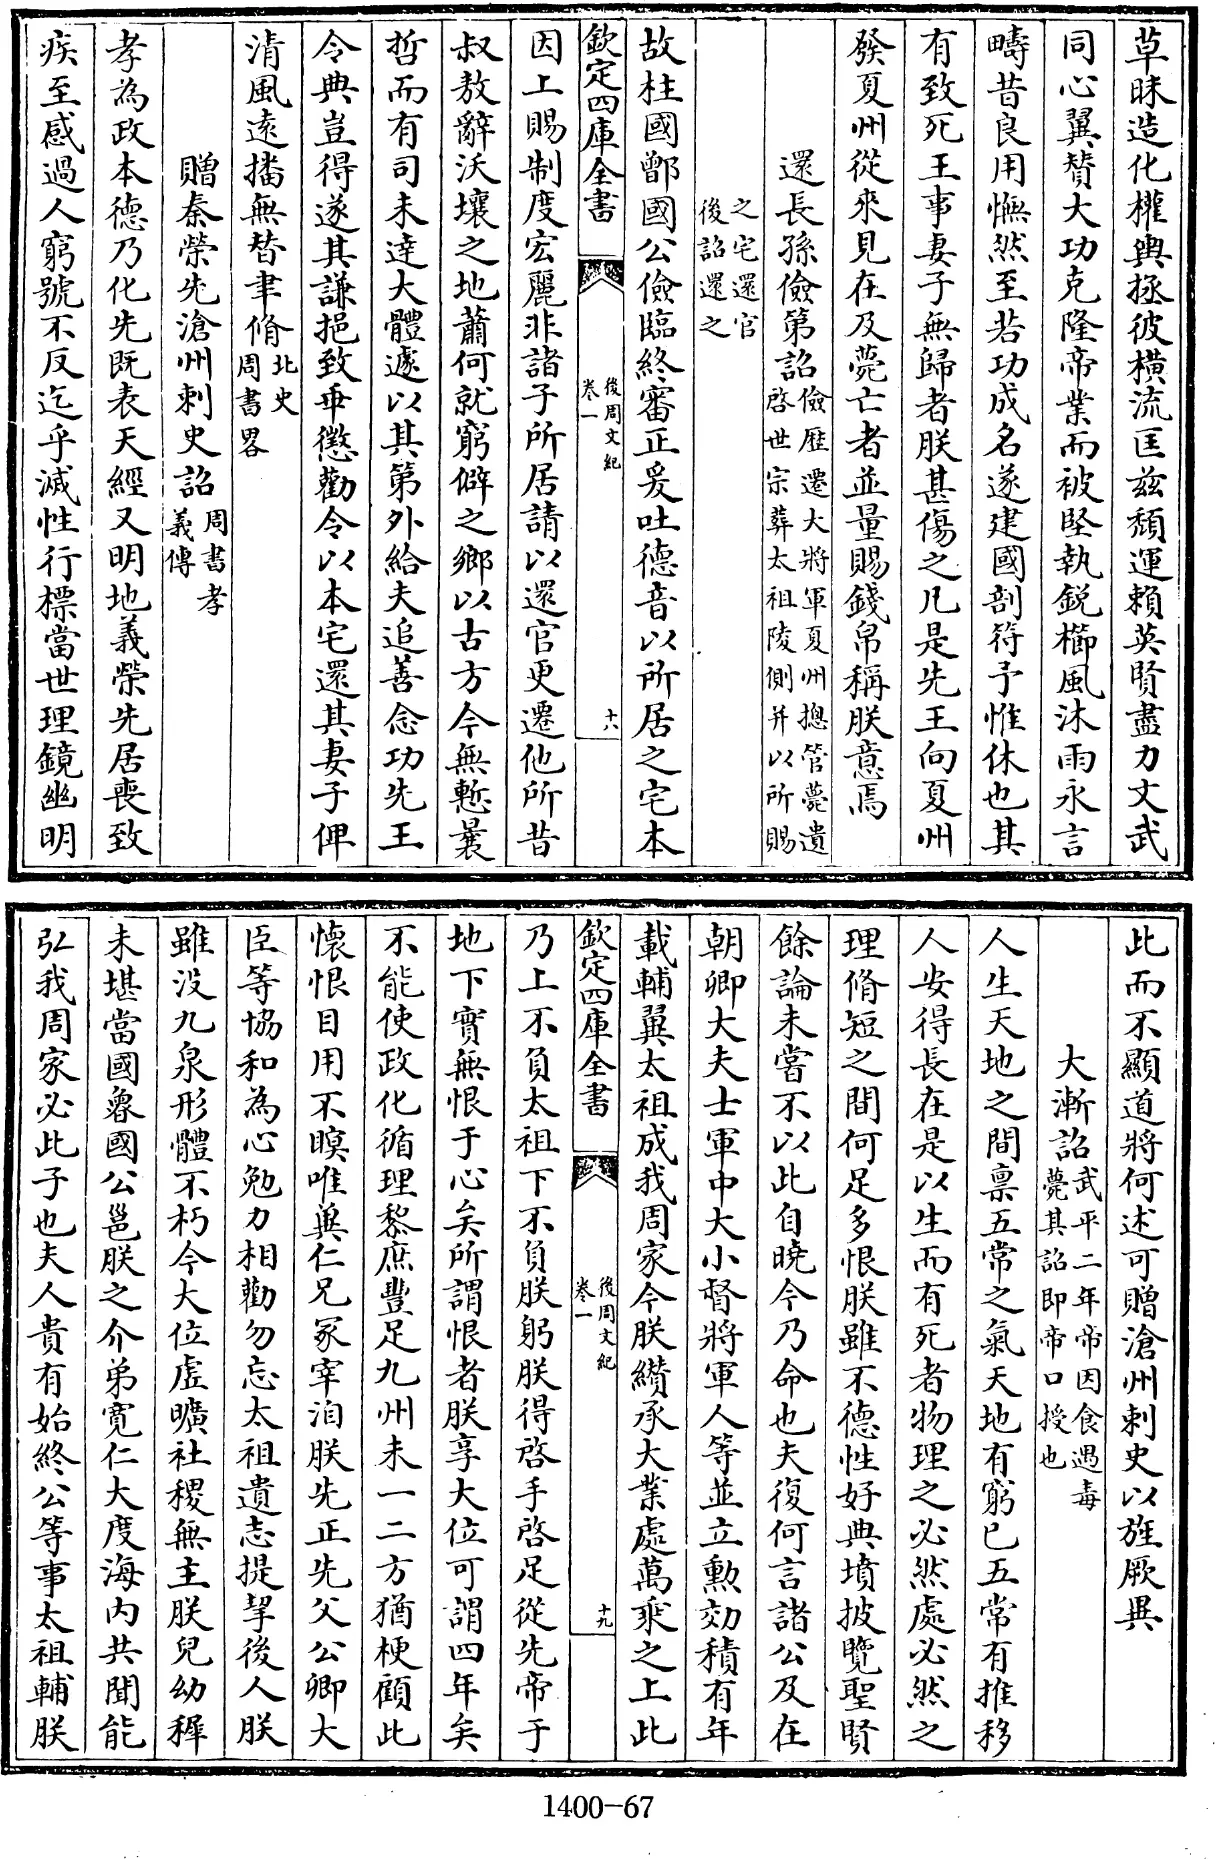 草昧造化權輿拯彼橫流匡兹頽運賴英賢盡力文武
同心翼賛大功克隆帝業而被堅執銳櫛風沐雨永言
疇昔良用憮然至若功成名遂建國剖符予惟休也其
有致死王事妻子無歸者朕甚傷之凡是先王向夏州
發夏州從來見在及薨亡者並量賜錢帛稱朕意焉
還長孫儉第詔儉歷遷大將軍夏州摠管薨遺
啓世宗葬太祖陵側并以所賜
之宅還官
後詔還之
故柱國鄫國公儉臨終審正爰吐德音以所居之宅本
欽定四庫全書
後周文紀
卷一
十六
因上賜制度宏麗非諸子所居請以還官更遷他所昔
叔敖辭沃壤之地蕭何就窮僻之鄉以古方今無慙曩
哲而有司未達大體遽以其第外給夫追善念功先王
令典豈得遂其謙挹致乖懲勸令以本宅還其妻子俾
清風遠播無替聿脩北史
周書畧
贈秦榮先滄州刺史詔周書孝
義傳
孝為政本德乃化先既表天經又明地義榮先居喪致
疾至感過人窮號不反迄乎滅性行標當世理鏡幽明
此而不顯道將何述可贈滄州刺史以旌厥異
大漸詔武平二年帝因食遇毒
薨其詔即帝口授也
人生天地之間禀五常之氣天地有窮已五常有推移
人安得長在是以生而有死者物理之必然處必然之
理脩短之間何足多恨朕雖不德性好典墳披覽聖賢
餘論未嘗不以此自曉今乃命也夫復何言諸公及在
朝卿大夫士軍中大小督將軍人等並立勳効積有年
載輔翼太祖成我周家今朕纘承大業處萬乘之上此
欽定四庫全書
後周文紀
卷一
十九
乃上不負太祖下不負朕躬朕得啓手啓足從先帝于
地下實無恨于心矣所謂恨者朕享大位可謂四年矣
不能使政化循理黎庶豐足九州未一二方猶梗顧此
懷恨目用不瞑唯兾仁兄冢宰洎朕先正先父公卿大
臣等協和為心勉力相勸勿忘太祖遺志提挈後人朕
雖没九泉形體不朽今大位虛曠社稷無主朕兒幼穉
未堪當國魯國公邕朕之介弟寬仁大度海內共聞能
弘我周家必此子也夫人貴有始終公等事太祖輔朕
1400-67